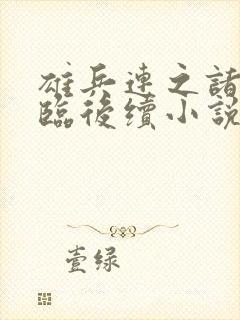 雄兵連之諸
臨後續小說
壹绿